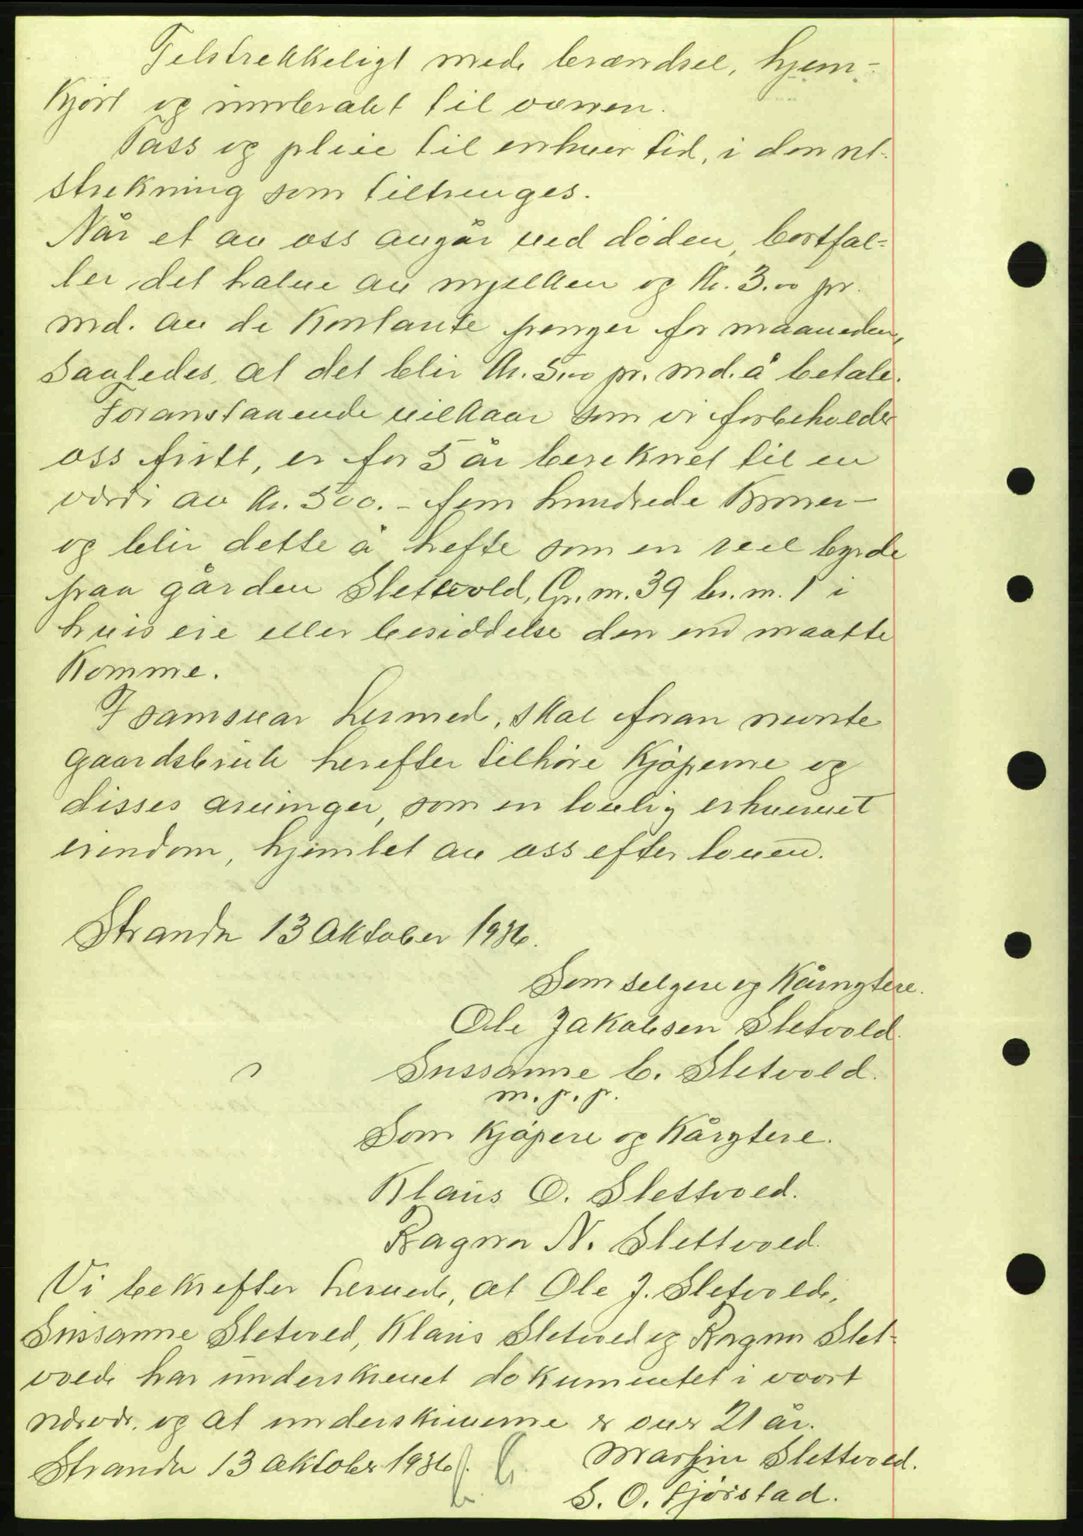 Telstrekkeligt med brændsel, hjem-
kjört og innbrakt til ovnen.
Pass og pleie til enhver tid, i den ut-
strekning som tiltrenges.
Når et av oss avgår ved döden, bortfal-
ler det halve av mjelken og Kr. 3.00 pr.
md. av de kontante penger for maaneden,
saaledes, at det blir Kr. 5.00 pr. md. å betale.
Foranstaaende vilkaar som vi forbeholder
oss fritt, er for 5 år bereknet til en
verdi av Kr. 500.- fem hundrede kroner -
og blir dette å hefte som en reel byrde
paa gården Sletvold, Gr. n. 39 br. n. 1 i
hvis eie eller besiddelse den end maatte
komme.
I samsvar hermed, skal foran nevnte
gaardsbruk herefter tilhöre kjöperne og
disses arvinger, som en lovlig erhvervet
eiendom, hjemlet av oss efter loven.
Stranda 13 Oktober 1936.
Som selgere og Kårnytere.
Ole Jakobsen Sletvold.
Sussanne C. Sletvold.
m. p. p.
Som kjöpere og Kårytere.
Klaus O. Slettvold.
Ragna N. Slettvold.
Vi bekrefter herved, at Ole J. Sletvold,
Sussanne Sletvold, Klaus Sletvold og Ragna Slet-
vold har underskrevet dokumentet i vort
nærvær, og at underskriverne er over 21 år.
Stranda 13 Oktober 1936.
Martin Slettvold.
S. O. Fjörstad.